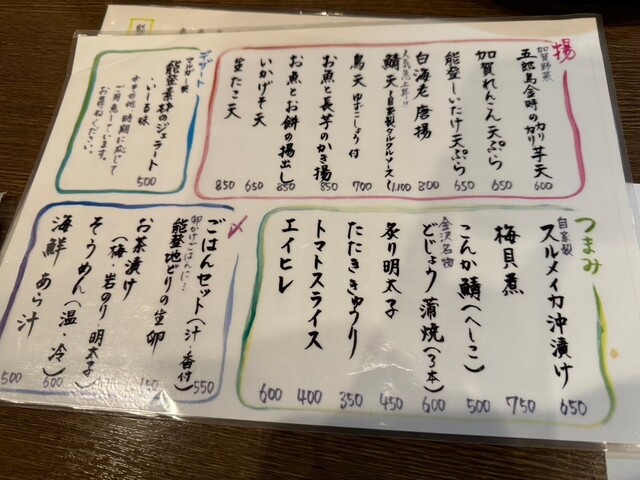 揚
加賀野菜
五郎島金時のカリカリ芋天 600
加賀れんこん天ぷら 650
能登しいたけ天ぷら 650
白海老唐揚 800
人気急上昇!!
鯖天(自家製タルタルソース) 1,100
鳥天 ゆずこしょう付 700
お魚と長芋のかき揚 850
お魚とお餅の揚出し 850
いかげそ天 650
生たこ天 850
デザート
マルガー製
能登素材のジェラート
・いしる味 500
※その他 時期に応じて
ご用意しています。
お尋ねください。
つまみ
自家製
スルメイカ沖漬け 650
梅貝煮 750
こんか鯖(へしこ) 500
金沢名物
どじょう蒲焼(3本) 600
炙り明太子 450
たたききゅうり 350
トマトスライス 400
エイヒレ 600
〆
ごはんセット(汁・香付) 550
卵かけごはんに…
能登地どりの生卵
お茶漬け
(梅・岩のり・明太子)
そうめん(温・冷) 600
海鮮あら汁 500